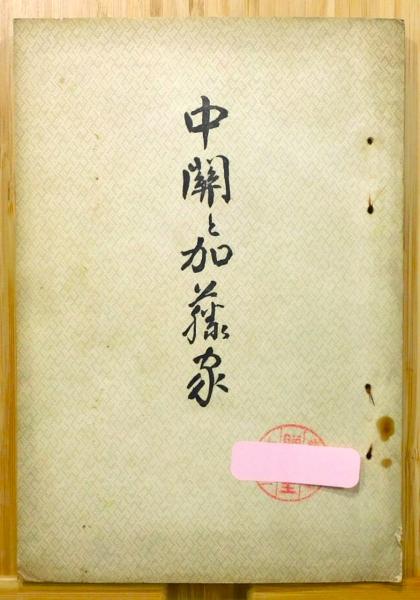 中關と加藤家